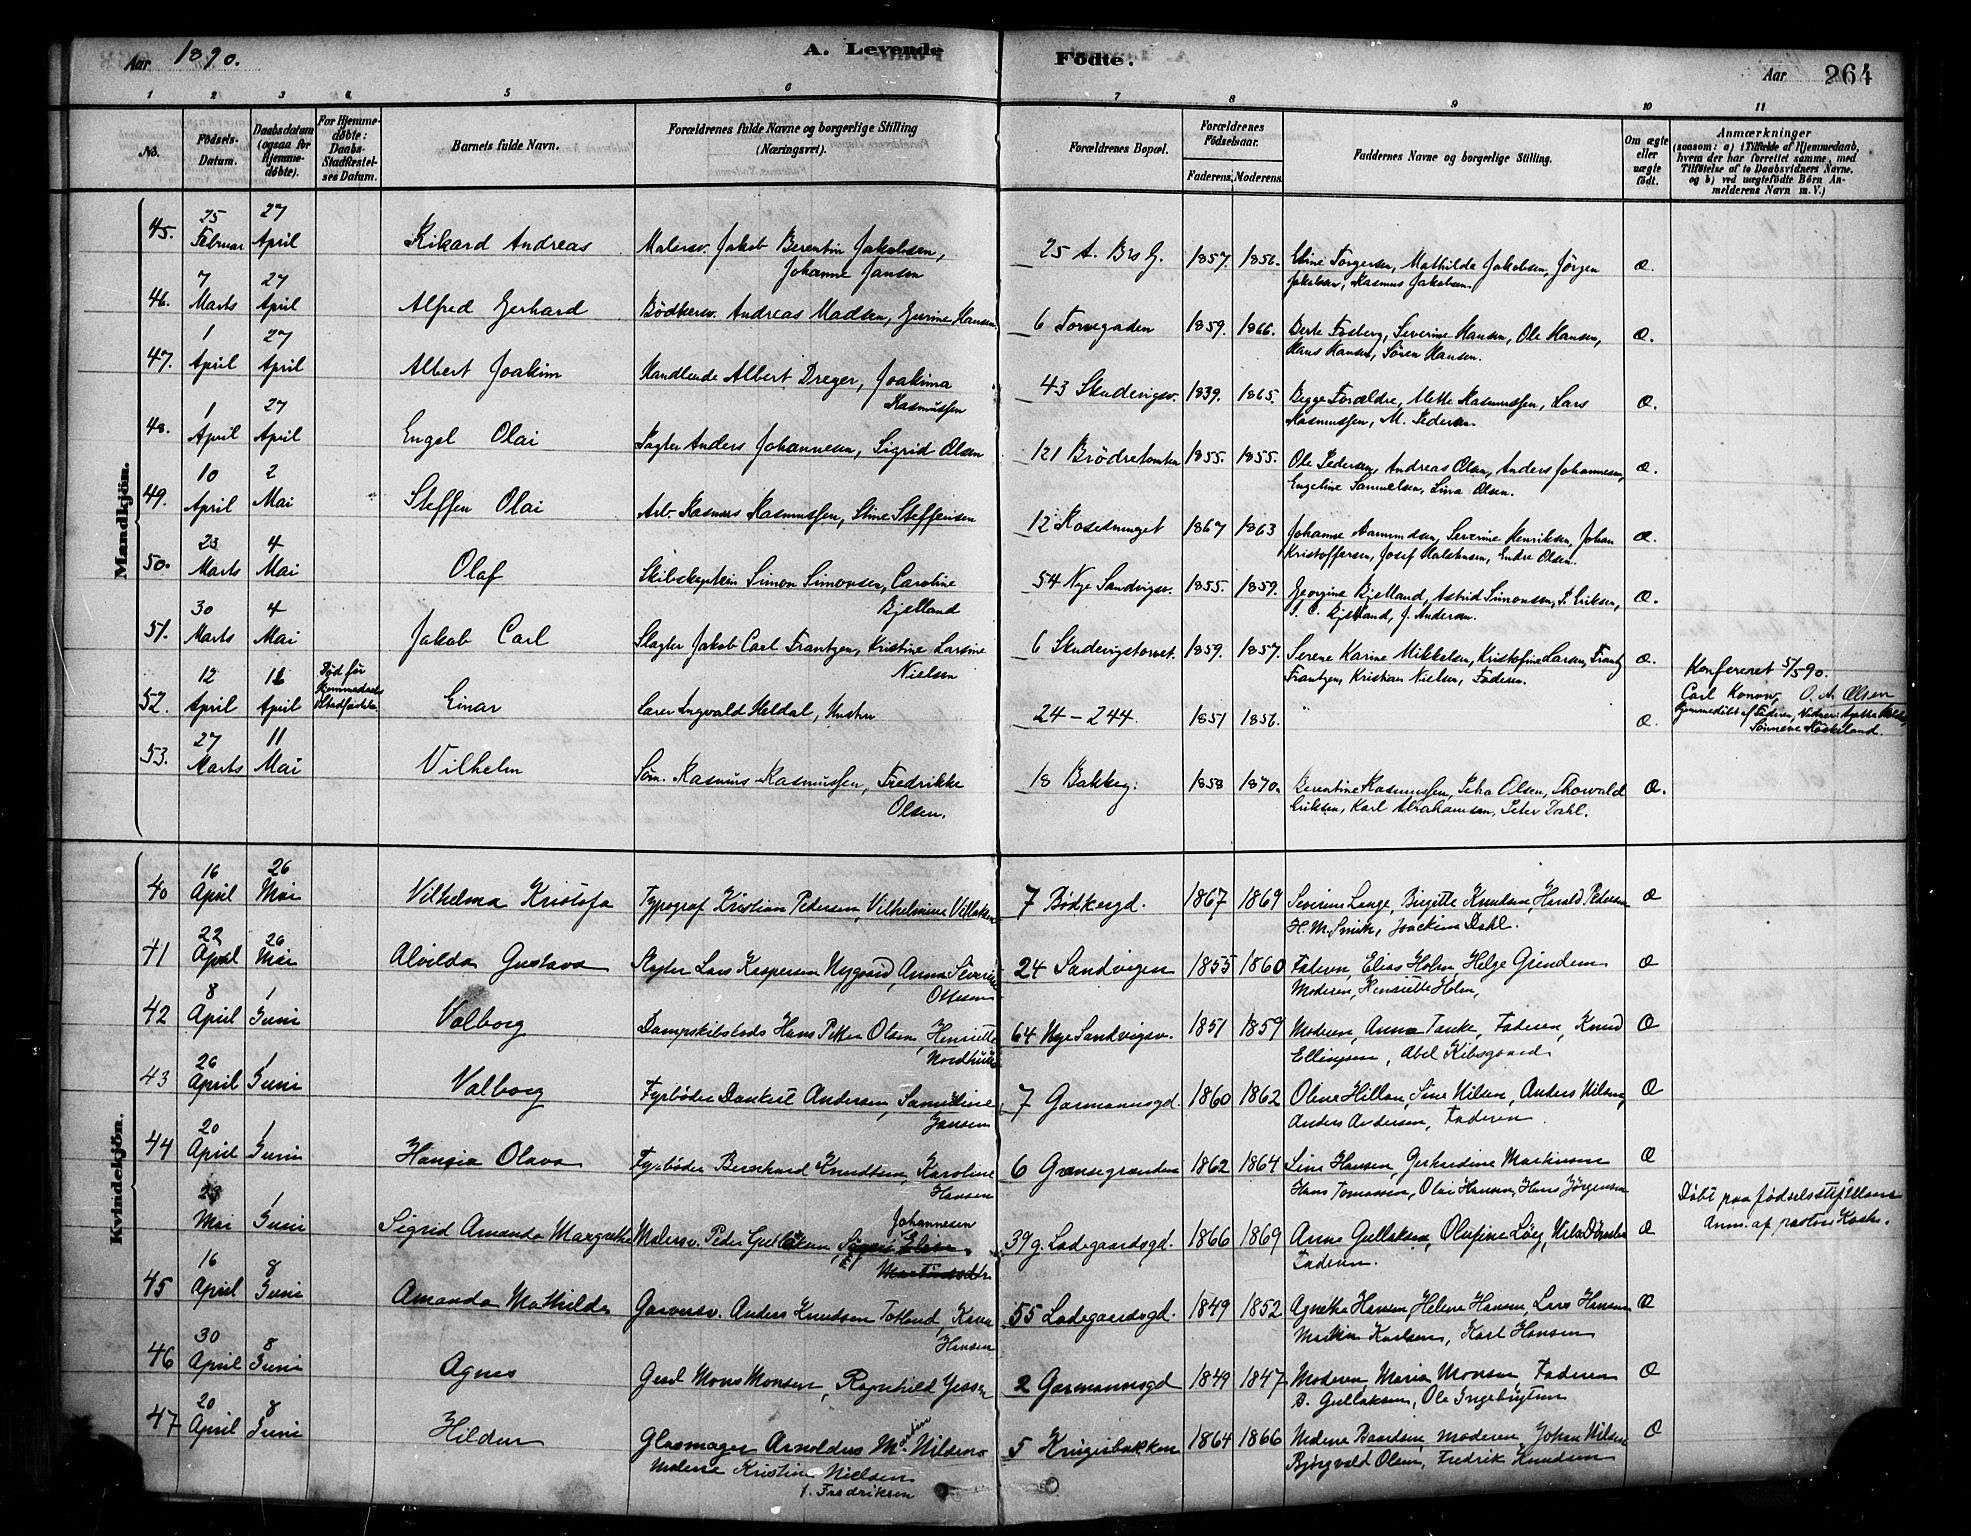 Aar 1890.
A. Levende
Födte.
Aar
264
1 2 3 4 5 6 7 8 9 10 11
No.
Födsels-
Datum.
Daabsdatum
(ogsaa for
Hjemme-
döbte).
For Hjemme-
döbte:
Daabs-
Stadfæstel-
ses Datum.
Barnets fulde Navn.
Forældrenes fulde Navne og borgerlige Stilling
(Næringsvei).
Forældrenes Bopæl.
Forældrenes
Födselsaar.
Faderens. Moderens.
Faddernes Navne og borgerlige Stilling.
Om ægte
eller
uægte
födt.
Anmærkninger
(saasom: a) i Tilfælde af Hjemmedaab,
hvem der har forrettet samme, med
Tilföielse af to Daabsvidners Navne,
og b) ved uægtefödte Börn An-
melderens Navn m. V.)
Mandkjön.
45. 25 Februar 27 April Rikard Andreas Malersv. Jakob Berentin Jakobsen, 25 A. 1857. 1856. Stine Torgersen, Mathilde Jakobsen, Jörgen Æ.
Johanne Jansen Jakobsen, Rasmus Jakobsen.
46. 7 Marts 27 April Alfred Gerhard Bödkersv. Andreas Madsen, Hansen. 6 Torvegaden 1859. 1866. Berte Severine Hansen, Ole Hansen, Æ.
Hans Hansen, Sören Hansen.
47. 1 April 27 April Albert Joakim Handlende Albert Dreyer, Joakima 43 Skudevigsv. 1839. 1865. Begge Forældre, Mette Rasmussen, Lars Æ.
Rasmussen Rasmussen, M. Pedersen.
48. 1 April 27 April Engel Olai Anders Johannesen, Sigrid Olsen 121 Brödretomten 1855. 1855. Ole Pedersen, Andreas Olsen, Anders Johannesen, Æ.
Engeline Samuelsen, Lina Olsen.
49. 10 April 2 Mai Steffen Olai Arb. Rasmus Rasmussen, Stine Steffensen 12 1867 1863 Johanne Aamundsen, Severine Henriksen, Johan Æ.
Kristoffersen, Josef Endre Olsen.
50. 23 Marts 4 Mai Olaf Skibskaptein Simon Simonsen, Caroline 54 Nye Sandvigsv. 1855. 1859. Georgine Bjelland, Astrid Simonsen, S. Eriksen, Æ.
Bjelland Bjelland, J. Andersen.
51. 30 Marts 4 Mai Jakob Carl Slagter Jakob Carl Frantzen, Kristine Larsine 6 Skudevigstorvet. 1859. 1857. Serene Karine Mikkelsen, Kristofine Larsen, Frantz Æ.
Nielsen Frantzen, Kristian Nielsen, Faderen.
52. 12 April 16 April Död för Hjemmedaabs Einar Lærer Ingvald Heldal, Hustru 24-244. 1851 1856. Æ. Konfereret 5/5 90.
Carl Konow, O. A. Olsen
Hjemmedöbt af Faderen, Vidner: Agathe
53. 27 Marts 11 Mai Vilhelm Söm. Rasmus Rasmussen, Fredrikke 18 Bakkeg. 1858 1870. Berentine Rasmussen, Olsen, Thorvald Æ.
Olsen. Eriksen, Karl Abrahamsen, Peter Dahl.
Kvindekjön.
40 16 April 26 Mai Vilhelma Kristofa Typograf Kristian Pedersen, Vilhelmine 7 Bödkergd. 1867 1869 Severine Lange, Birgitte Knudsen, Harald Pedersen Æ
H. M. Smith, Joachim Dahl.
41 22 April 26 Mai Alvilda Gustava Lars Kaspersen Nygaard, Anna Severine 24 Sandvigen 1855 1860 Faderen, Elias Holm, Helge Grindem Æ
Ottesen Moderen, Henriette Holm,
42 8 April 1 Juni Valborg Dampskibslods Hans Petter Olsen, Henriette 64 Nye Sandvigsv. 1851 1859 Moderen, Anna Tanke, Faderen, Knud Æ
Ellingsen, Abel Kibsgaard
43 26 April 1 Juni Valborg Fyrböder Dankert Andersen, 7 Garmannsgd. 1860 1862 Oline Hillan, Sine Nilsen, Anders Nilsen, Æ
Jansen Anders Andersen, Faderen.
44 20 April 1 Juni Hansia Olava Fyrböder Bernhard Knudtsen, Karoline 6 Grænsegrænden 1862 1864 Line Hansen, Gerhardine Martinsen Æ
Hansen Hans Tomassen, Olai Hansen, Hans Jörgensen
23 Mai 1 Juni Sigrid Amanda Margrethe Malersv. Peder Gullaksen, Johannesen 39 g. Ladegaardsgd. 1866 1869 Anne Gullaksen, Olufine Æ Döbt paa födselsstiftelsen
Faderen. anm. af pastor Koch.
45 16 April 8 Juni Amanda Mathilde Garversv. Anders Knudsen Totland, 55 Ladegaardsgd. 1849 1852 Agnethe Hansen, Helene Hansen, Lars Hansen Æ
Hansen Karlsen, Karl Hansen
46 30 April 8 Juni Agnes Mons Monsen, Ragnhild 2 Garmannsgd 1849 1847 Moderen, Maria Monsen, Faderen Æ
B. Gullaksen, Ole Ingebrigtsen
47 20 April 8 Juni Hildur Glasmager Arnoldus Nilsens 5 Krügerbakken 1864 1866 Baardsen, Moderen, Johan Nilsen Æ
Malene Kristine Nielsen Olsen, Fredrik Knudsen
f. Fredriksen